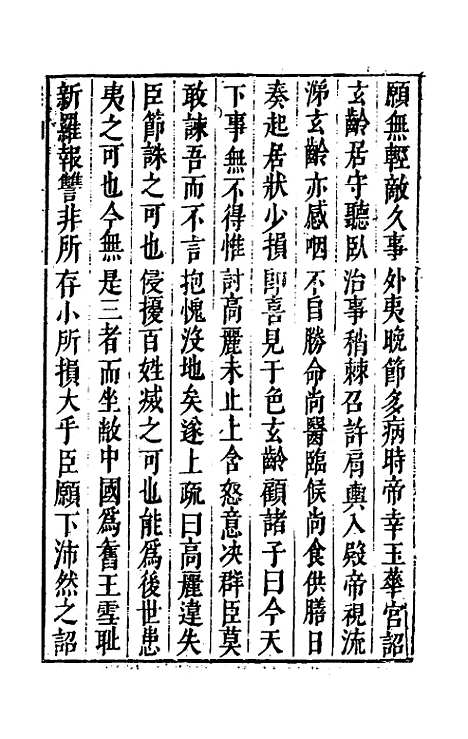 願無輕敵久事外夷晚節多病時帝幸玉華宮詔
玄齡居守聽臥治事稍棘召許肩輿入殿帝視流
涕玄齡亦感咽不自勝命尚醫臨候尚食供膳日
奏起居狀少損卽喜見于色玄齡顧諸子曰今天
下事無不得惟討高麗未止上含怒意决群臣莫
敢諫吾而不言抱愧沒地矣遂上疏曰高麗違失
臣節誅之可也侵擾百姓滅之可也能爲後世患
夷之可也今無是三者而坐敝中國爲舊王雪耻
新羅報讐非所存小所損大乎臣願下沛然之詔